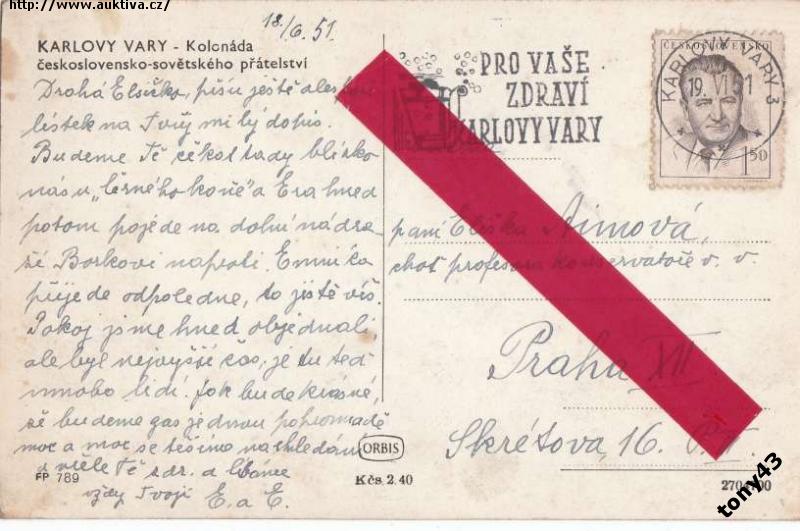 http://www.auktiva.cz/
18/6. 51.
KARLOVY VARY - Kolonáda
československo-sovětského přátelství
Drahá Elsičko, píšu ještě alespoň
lístek na Tvůj milý dopis.
Budeme Tě čekat tady blízko
nás u „černého koně" a E. a hned
potom pojede na dolní nádra-
ží Borkovi naproti. Emmička
přijede odpoledne, to jistě víš.
Pokoj jsme hned objednali,
ale byl nejvyšší čas, je tu teď
mnoho lidí. Jak bude krásné,
že budeme zas jednou pohromadě
moc a moc se těšíme na shledání
a vřele Tě zdr. a líbáme
vždy Tvoji E. a E.
FP 789
ORBIS
Kčs 2.40
PRO VAŠE
ZDRAVÍ
KARLOVY VARY
KARLOVY VARY 3
19. VI. 51
ČESKOSLOVENSKO
1 50
paní Eliška Aimová,
choť profesora konservatoře v. v.
Praha XII
Skrétova 16.
tony43